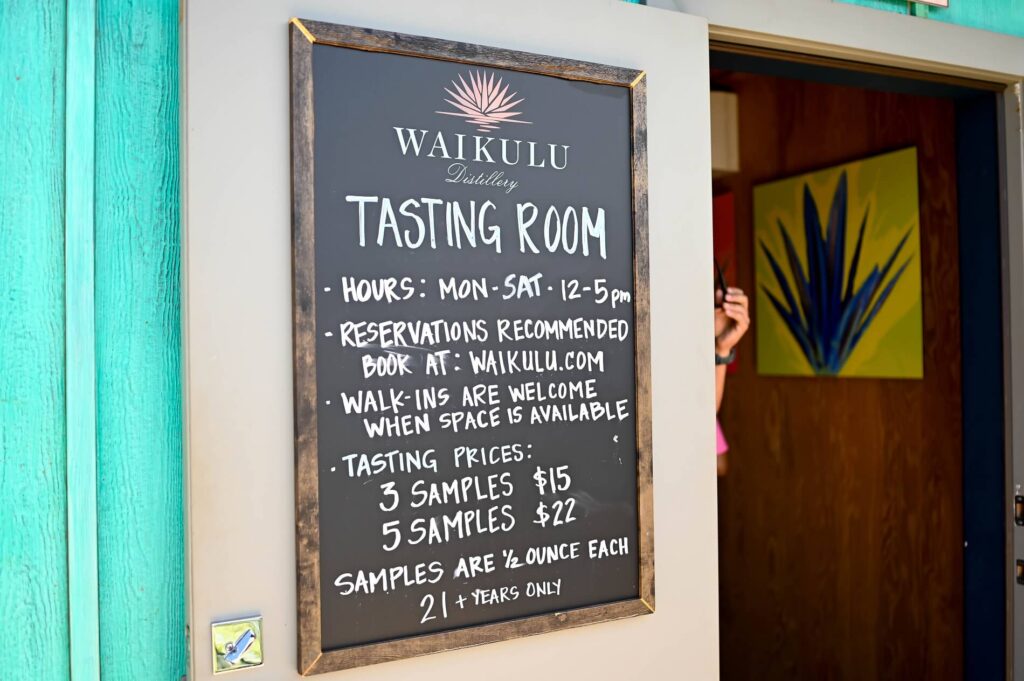 WAIKULU
Distillery
TASTING ROOM
· HOURS: MON-SAT· 12-5pm
· RESERVATIONS RECOMMENDED
BOOK AT: WAIKULU.COM
· WALK-INS ARE WELCOME
WHEN SPACE IS AVAILABLE
· TASTING PRICES:
3 SAMPLES $15
5 SAMPLES $22
SAMPLES ARE ½ OUNCE EACH
21+ YEARS ONLY